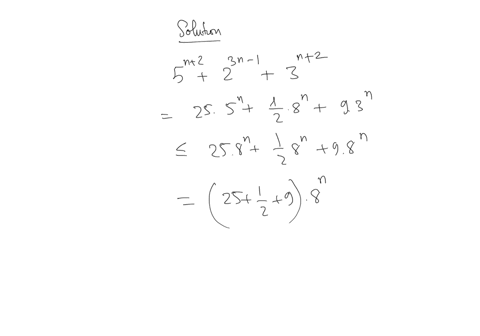 Solution
5^{n+2} + 2^{3n-1} + 3^{n+2}
= 25. 5^n + 1/2 . 8^n + 9 3^n
≤ 25.8^n + 1/2 8^n + 9.8^n
= (25 + 1/2 + 9) . 8^n